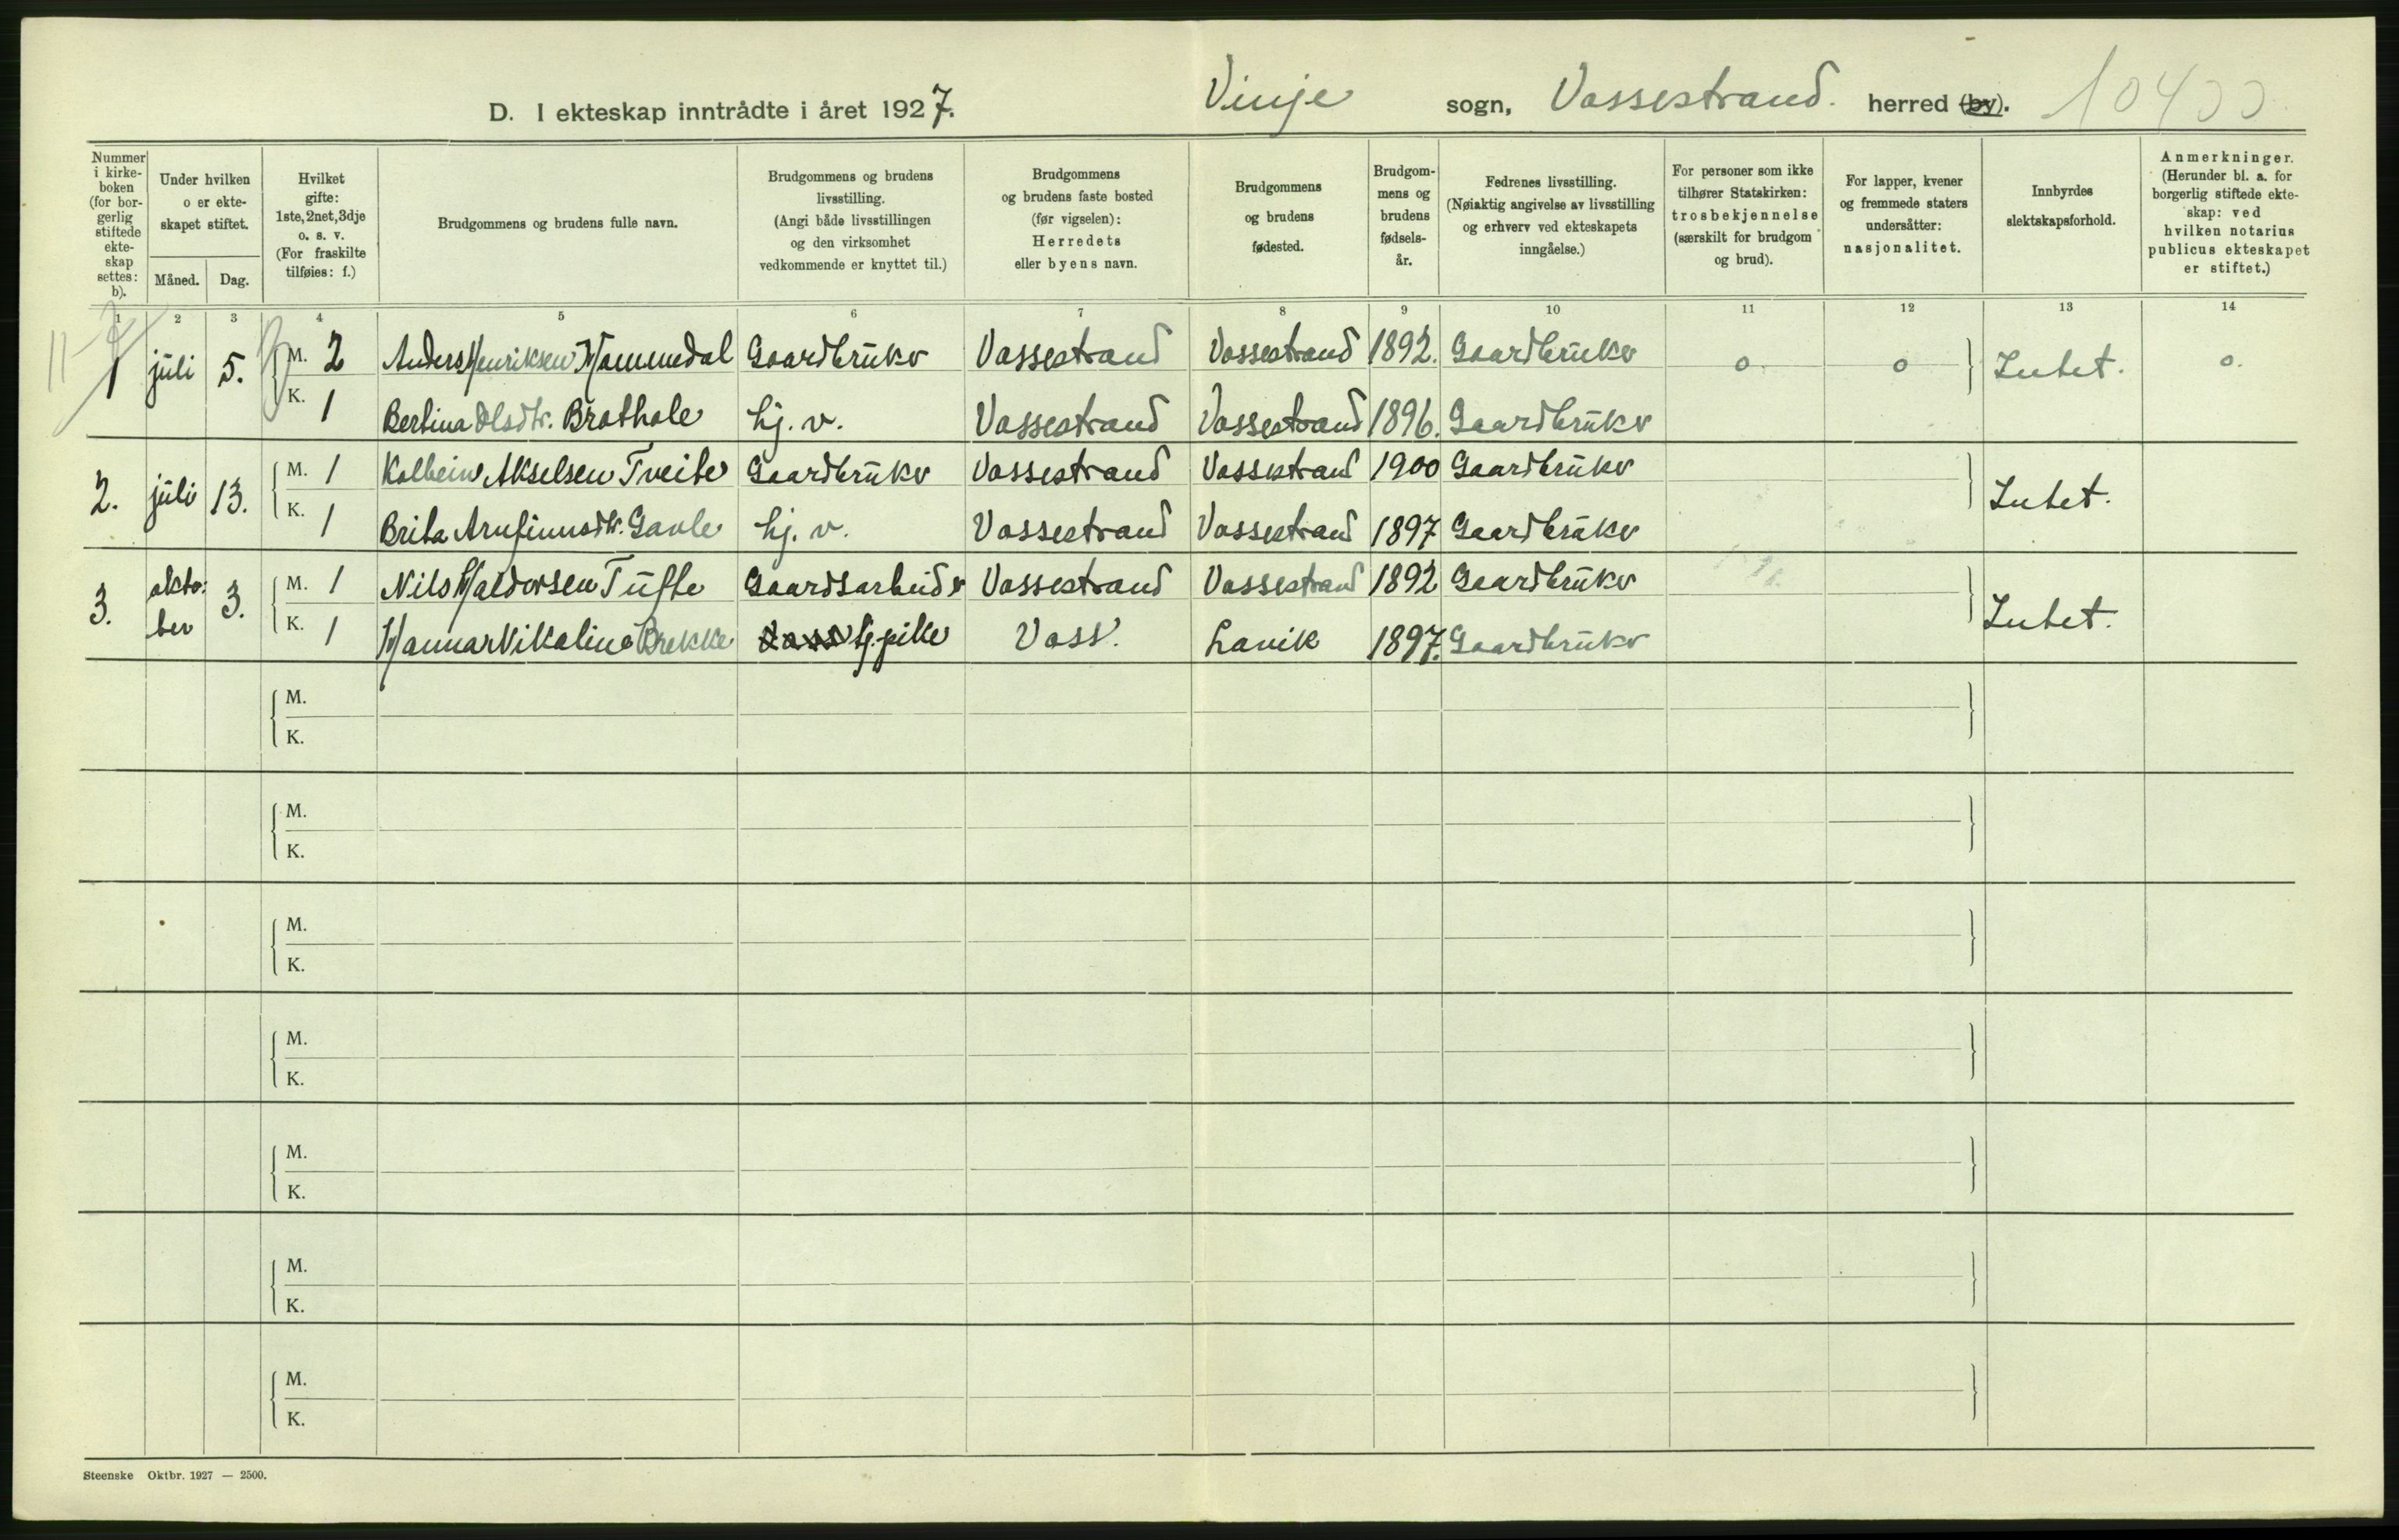 D. I ekteskap inntrådte i året 1927. Vinje sogn, Vossestrand. herred (by). 10400
Nummer i kirke- boken (for bor- gerlig stiftede ekte- skap settes: b).
Under hvilken o er ekte- skapet stiftet.
Måned. Dag.
Hvilket gifte: 1ste, 2net, 3dje o. s. v. (For fraskilte tilføies: f.)
Brudgommens og brudens fulle navn.
Brudgommens og brudens livsstilling. (Angi både livsstillingen og den virksomhet vedkommende er knyttet til.)
Brudgommens og brudens faste bosted (før vigselen): Herredets eller byens navn.
Brudgommens og brudens fødested.
Brudgom- mens og brudens fødsels- år.
Fedrenes livsstilling. (Nøiaktig angivelse av livsstilling og erhverv ved ekteskapets inngåelse.)
For personer som ikke tilhører Statskirken: trosbekjennelse (særskilt for brudgom og brud).
For lapper, kvener og fremmede staters undersåtter: nasjonalitet.
Innbyrdes slektskapsforhold.
Anmerkninger. (Herunder bl. a. for borgerlig stiftede ekte- skap: ved hvilken notarius publicus ekteskapet er stiftet.)
1 2 3 4 5 6 7 8 9 10 11 12 13 14
1 juli 5. M. 2 Anders Henriksen Hommedal Gaardbruker Vossestrand Vossestrand 1892. Gaardbruker o. o Intet. o.
K. 1 Bertina Olsdtr. Brathole hj. v. Vossestrand Vossestrand 1896. Gaardbruker
2. juli 13. M. 1 Kolbein Akselsen Tveite Gaardbruker Vossestrand Vossestrand 1900 Gaardbruker Intet.
K. 1 Brita Arnfinnsdtr. Gavle hj. v. Vossestrand Vossestrand 1897 Gaardbruker
3. okto: ber 3. M. 1 Nils Haldorsen Tufte Gaardsarbeider Vossestrand Vossestrand 1892 Gaardbruker Intet.
K. 1 Hanna Nikoline Brekke Voss hj. pike Voss. Lavik 1897. Gaardbruker
M.
K.
M.
K.
M.
K.
M.
K.
M.
K.
M.
K.
M.
K.
Steenske Oktbr. 1927 — 2500.